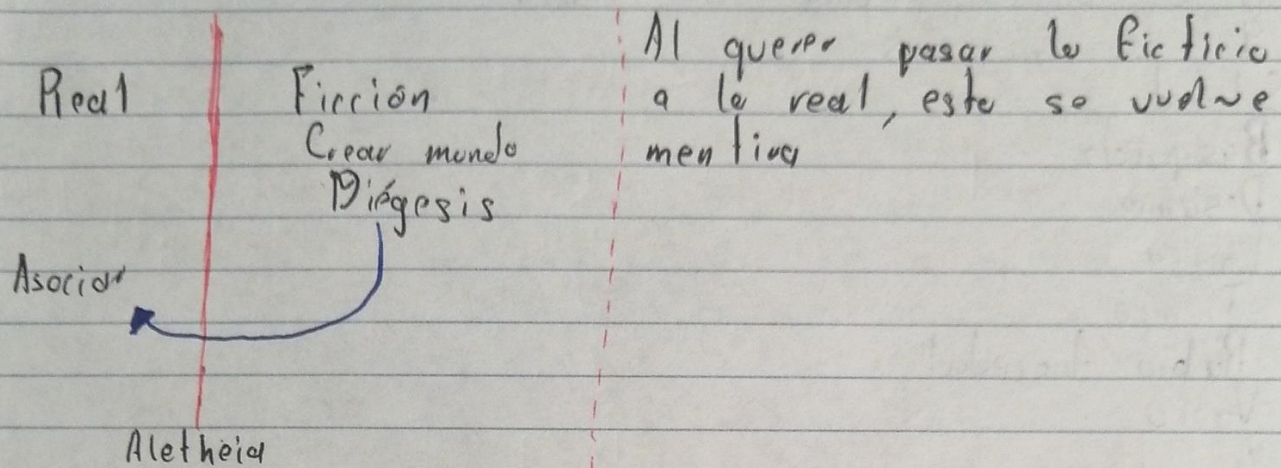 Real
Asociar
Ficción
Crear mundo
Diégesis
Aletheia
Al querer pasar lo ficticio
a lo real, este se vuelve
mentira